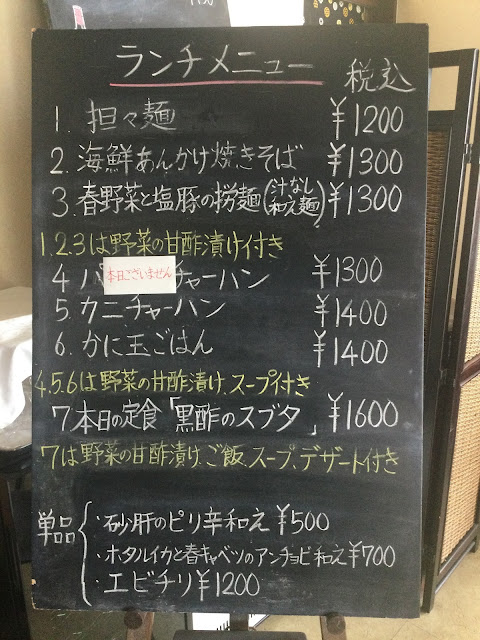 ランチメニュー 税込
1. 担々麺 ¥1200
2. 海鮮あんかけ焼きそば ¥1300
3. 春野菜と塩豚の撈麺(汁なし和え麺) ¥1300
1.2.3は野菜の甘酢漬け付き
4 パ 本日ございません チャーハン ¥1300
5. カニチャーハン ¥1400
6. かに玉ごはん ¥1400
4.5.6は野菜の甘酢漬け、スープ付き
7 本日の定食「黒酢のスブタ」 ¥1600
7は野菜の甘酢漬け、ご飯、スープ、デザート付き
単品
・砂肝のピリ辛和え ¥500
・ホタルイカと春キャベツのアンチョビ和え ¥700
・エビチリ ¥1200